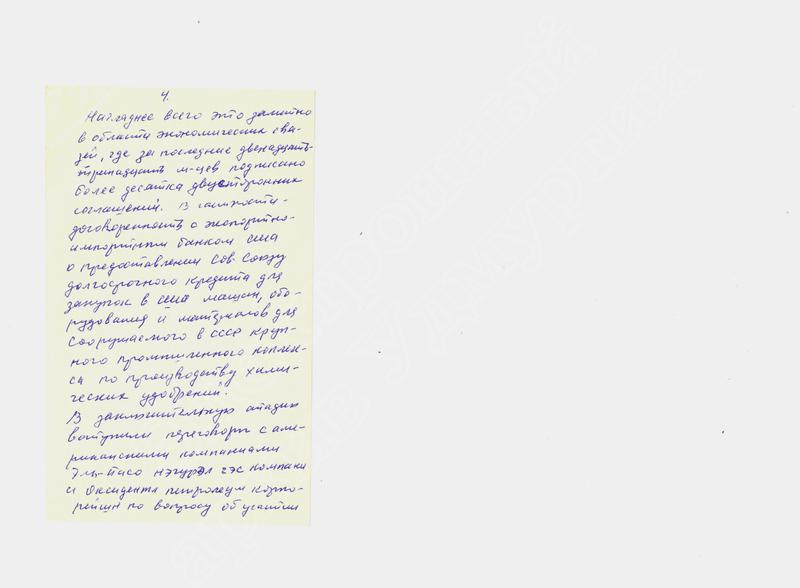 4.
Нагляднее всего это заметно
в области экономических свя-
зей, где за последние двенадцать-
тринадцать м-цев подписано
более десятка двусторонних
соглашений. В частности-
договоренность с экспортно-
импортным банком сша
о предоставлении Сов. Союзу
долгосрочного кредита для
закупок в сша машин, обо-
рудования и материалов для
сооружаемого в ссср круп-
ного промышленного комплек-
са по производству хими-
ческих удобрений.
В заключительную стадию
вступили переговоры с аме-
риканскими компаниями
Эль-Пасо нэчурэл гэс компани
и Оксидентл петролеум корпо-
рейшн по вопросу об участии